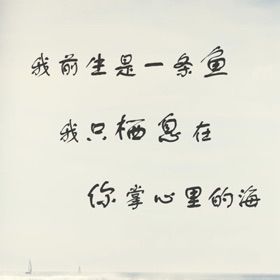 我前生是一条鱼
我只栖息在
你掌心里的海